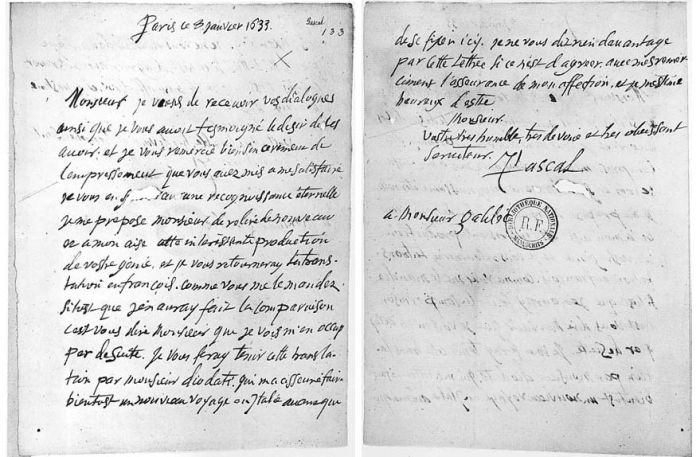 Paris ce 8 janvier 1633.
Pascal
133
Monsieur je viens de recevoir vos dialogues
ainsi que je vous avoit tesmoigné le desir de les
avoir. et je vous remercie bien sincerement de
lempressement que vous avez mis a me satisfaire
je vous en une recognoissance eternelle
je me propose monsieur de relire de nouveau
et a mon aise cette interessente production
de vostre genie. et je vous retourneray
en francois. comme vous me le mandez.
sitost que jen auray fait la comparaison
cest vous dire Monsieur que je vois m'en occup
per de suite. Je vous feray tenir cette transla-
tion par monsieur diodati. qui ma asseuré faire
bientost un nouveau voyage en Italie avant que
ici. je ne vous diray rien davantage
par cette lettre si ce n'est d'agreer. avec mes remer
ciment l'asseurance de mon affection. et je mestime
heureux d'estre
Monsieur.
Vostre tres humble, tres devoué et tres obeissant
serviteur.
Pascal
a Monsieur galilée
BIBLIOTHÈQUE NATIONALE
R.F.
MANUSCRITS